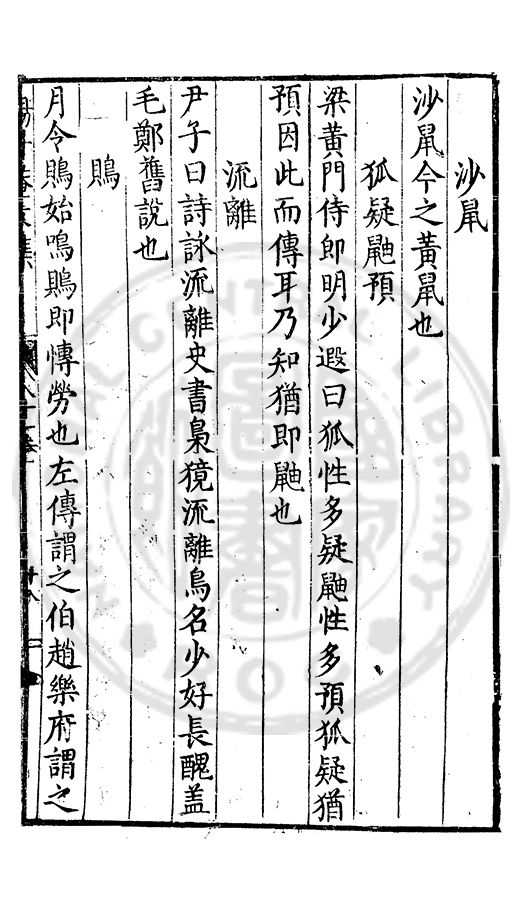 沙鼠
沙鼠今之黃鼠也
狐疑鼬預
梁黃門侍郎明少遐曰狐性多疑鼬性多預狐疑猶
預因此而傳耳乃知猶即鼬也
流離
尹子曰詩詠流離史書梟獍流離鳥名少好長醜盖
毛鄭舊說也
鵙
月令鵙始鳴鵙即慱勞也左傳謂之伯趙樂府謂之